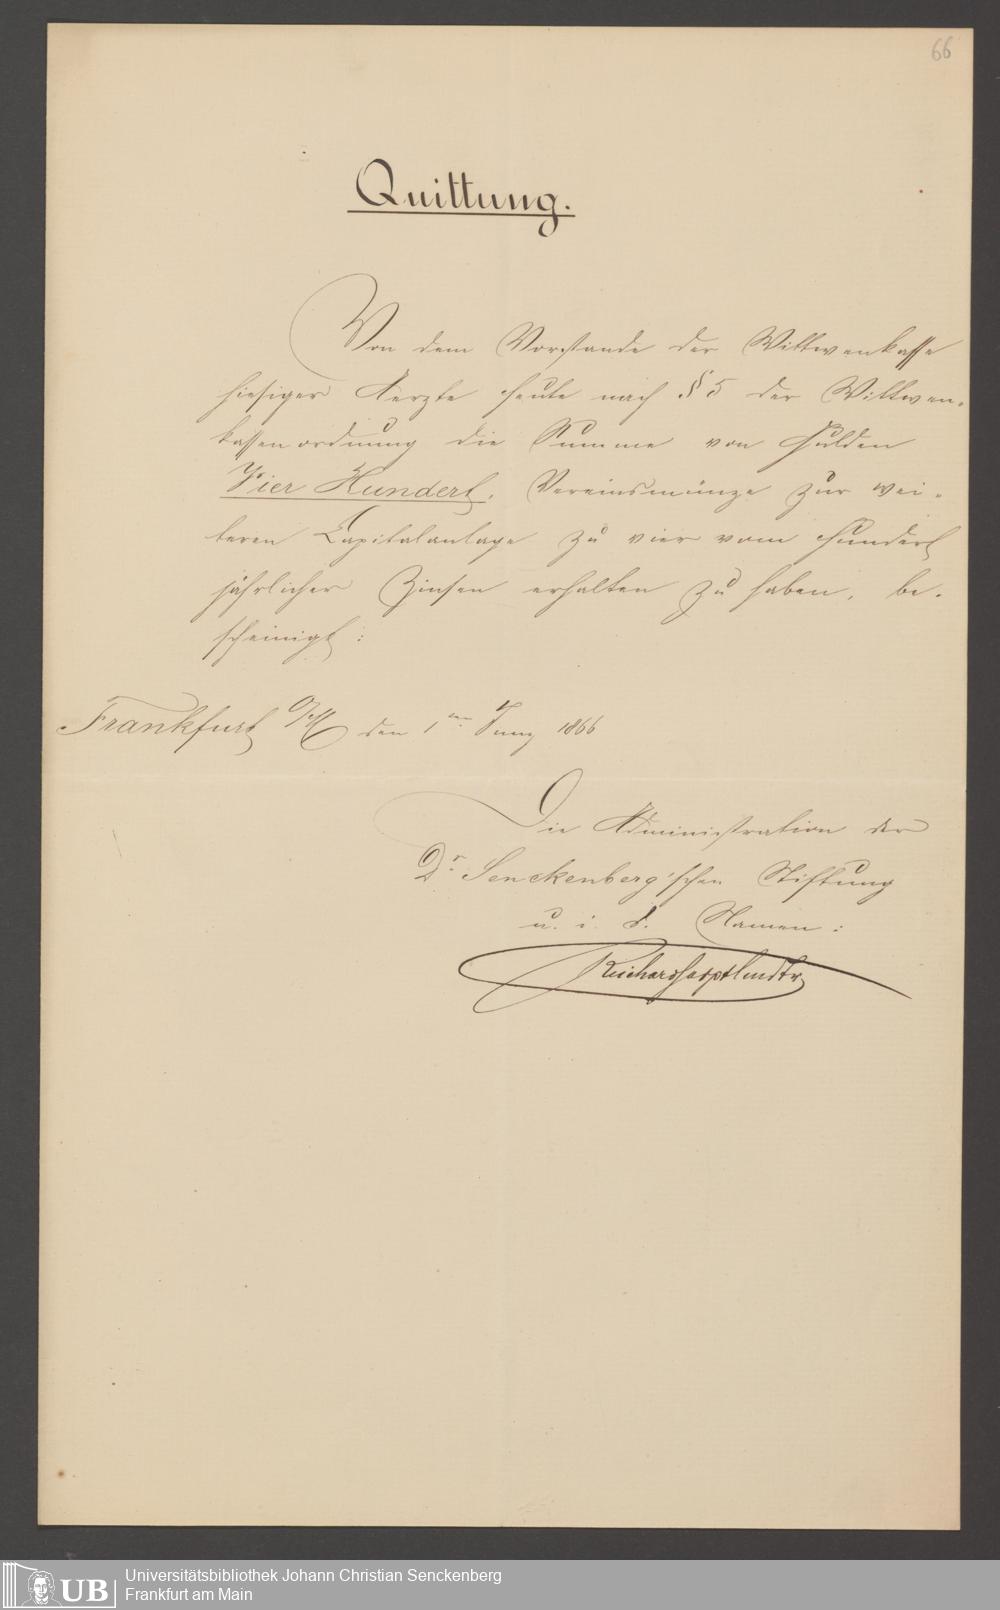 66
Quittung.
Von dem Vorstande der Wittwenkasse
hiesiger Aerzte heute nach § 5 der Wittwen-
kassenordnung die Summe von Gulden
Vier Hundert, Vereinsmünze zur wei-
teren Capitalanlage zu vier vom Hundert
jährlicher Zinsen erhalten zu haben, be-
scheinigt:
Frankfurt a/M den 1ten Juny 1866
Die Administration der
Dr. Senckenberg'schen Stiftung
u. i. d. Namen:
UB
Universitätsbibliothek Johann Christian Senckenberg
Frankfurt am Main